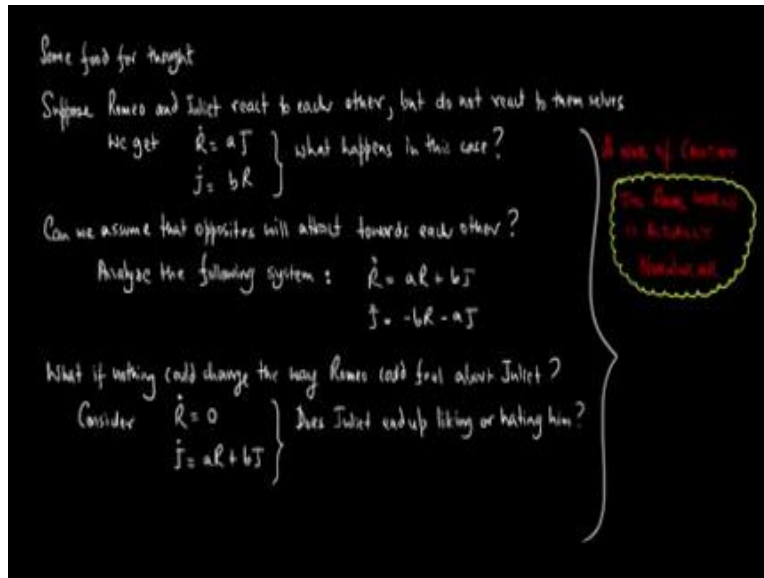 Some food for thought
Suppose Romeo and Juliet react to each other, but do not react to them selves
We get Ṙ = aJ
J̇ = bR
what happens in this case?
Can we assume that opposites will attract towards each other?
Analyze the following system: Ṙ = aR + bJ
J̇ = -bR - aJ
What if nothing could change the way Romeo could feel about Juliet?
Consider Ṙ = 0
J̇ = aR + bJ
Does Juliet end up liking or hating him?
A note of Caution
The Real World
is Actually
Nonlinear